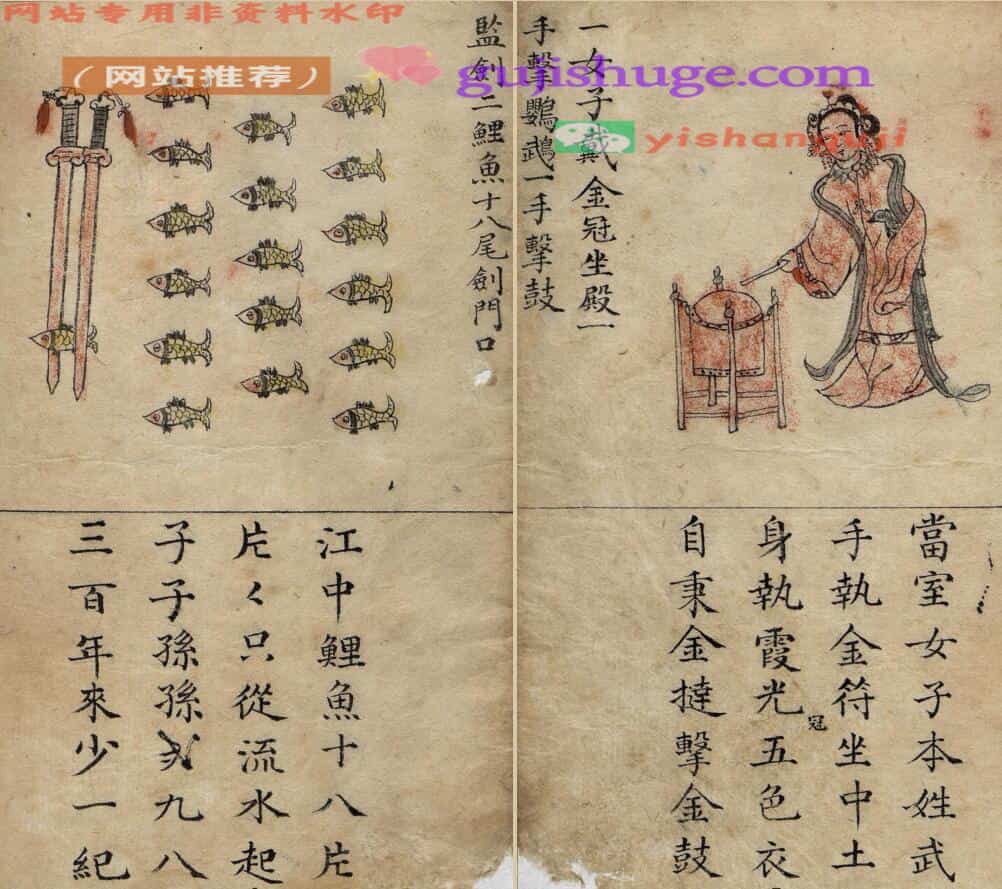 网站专用非资料水印
（网站推荐）
gujishuge.com
yishanguji
一女子戴金冠坐殿一
手擊鸚鵡一手擊鼓
當室女子本姓武
手執金符坐中土
身執霞光五色衣
冠
自秉金撻擊金鼓
監劍二鯉魚十八尾劍門口
江中鯉魚十八片
片々只從流水起
子子孫孫九八
三百年來少一紀